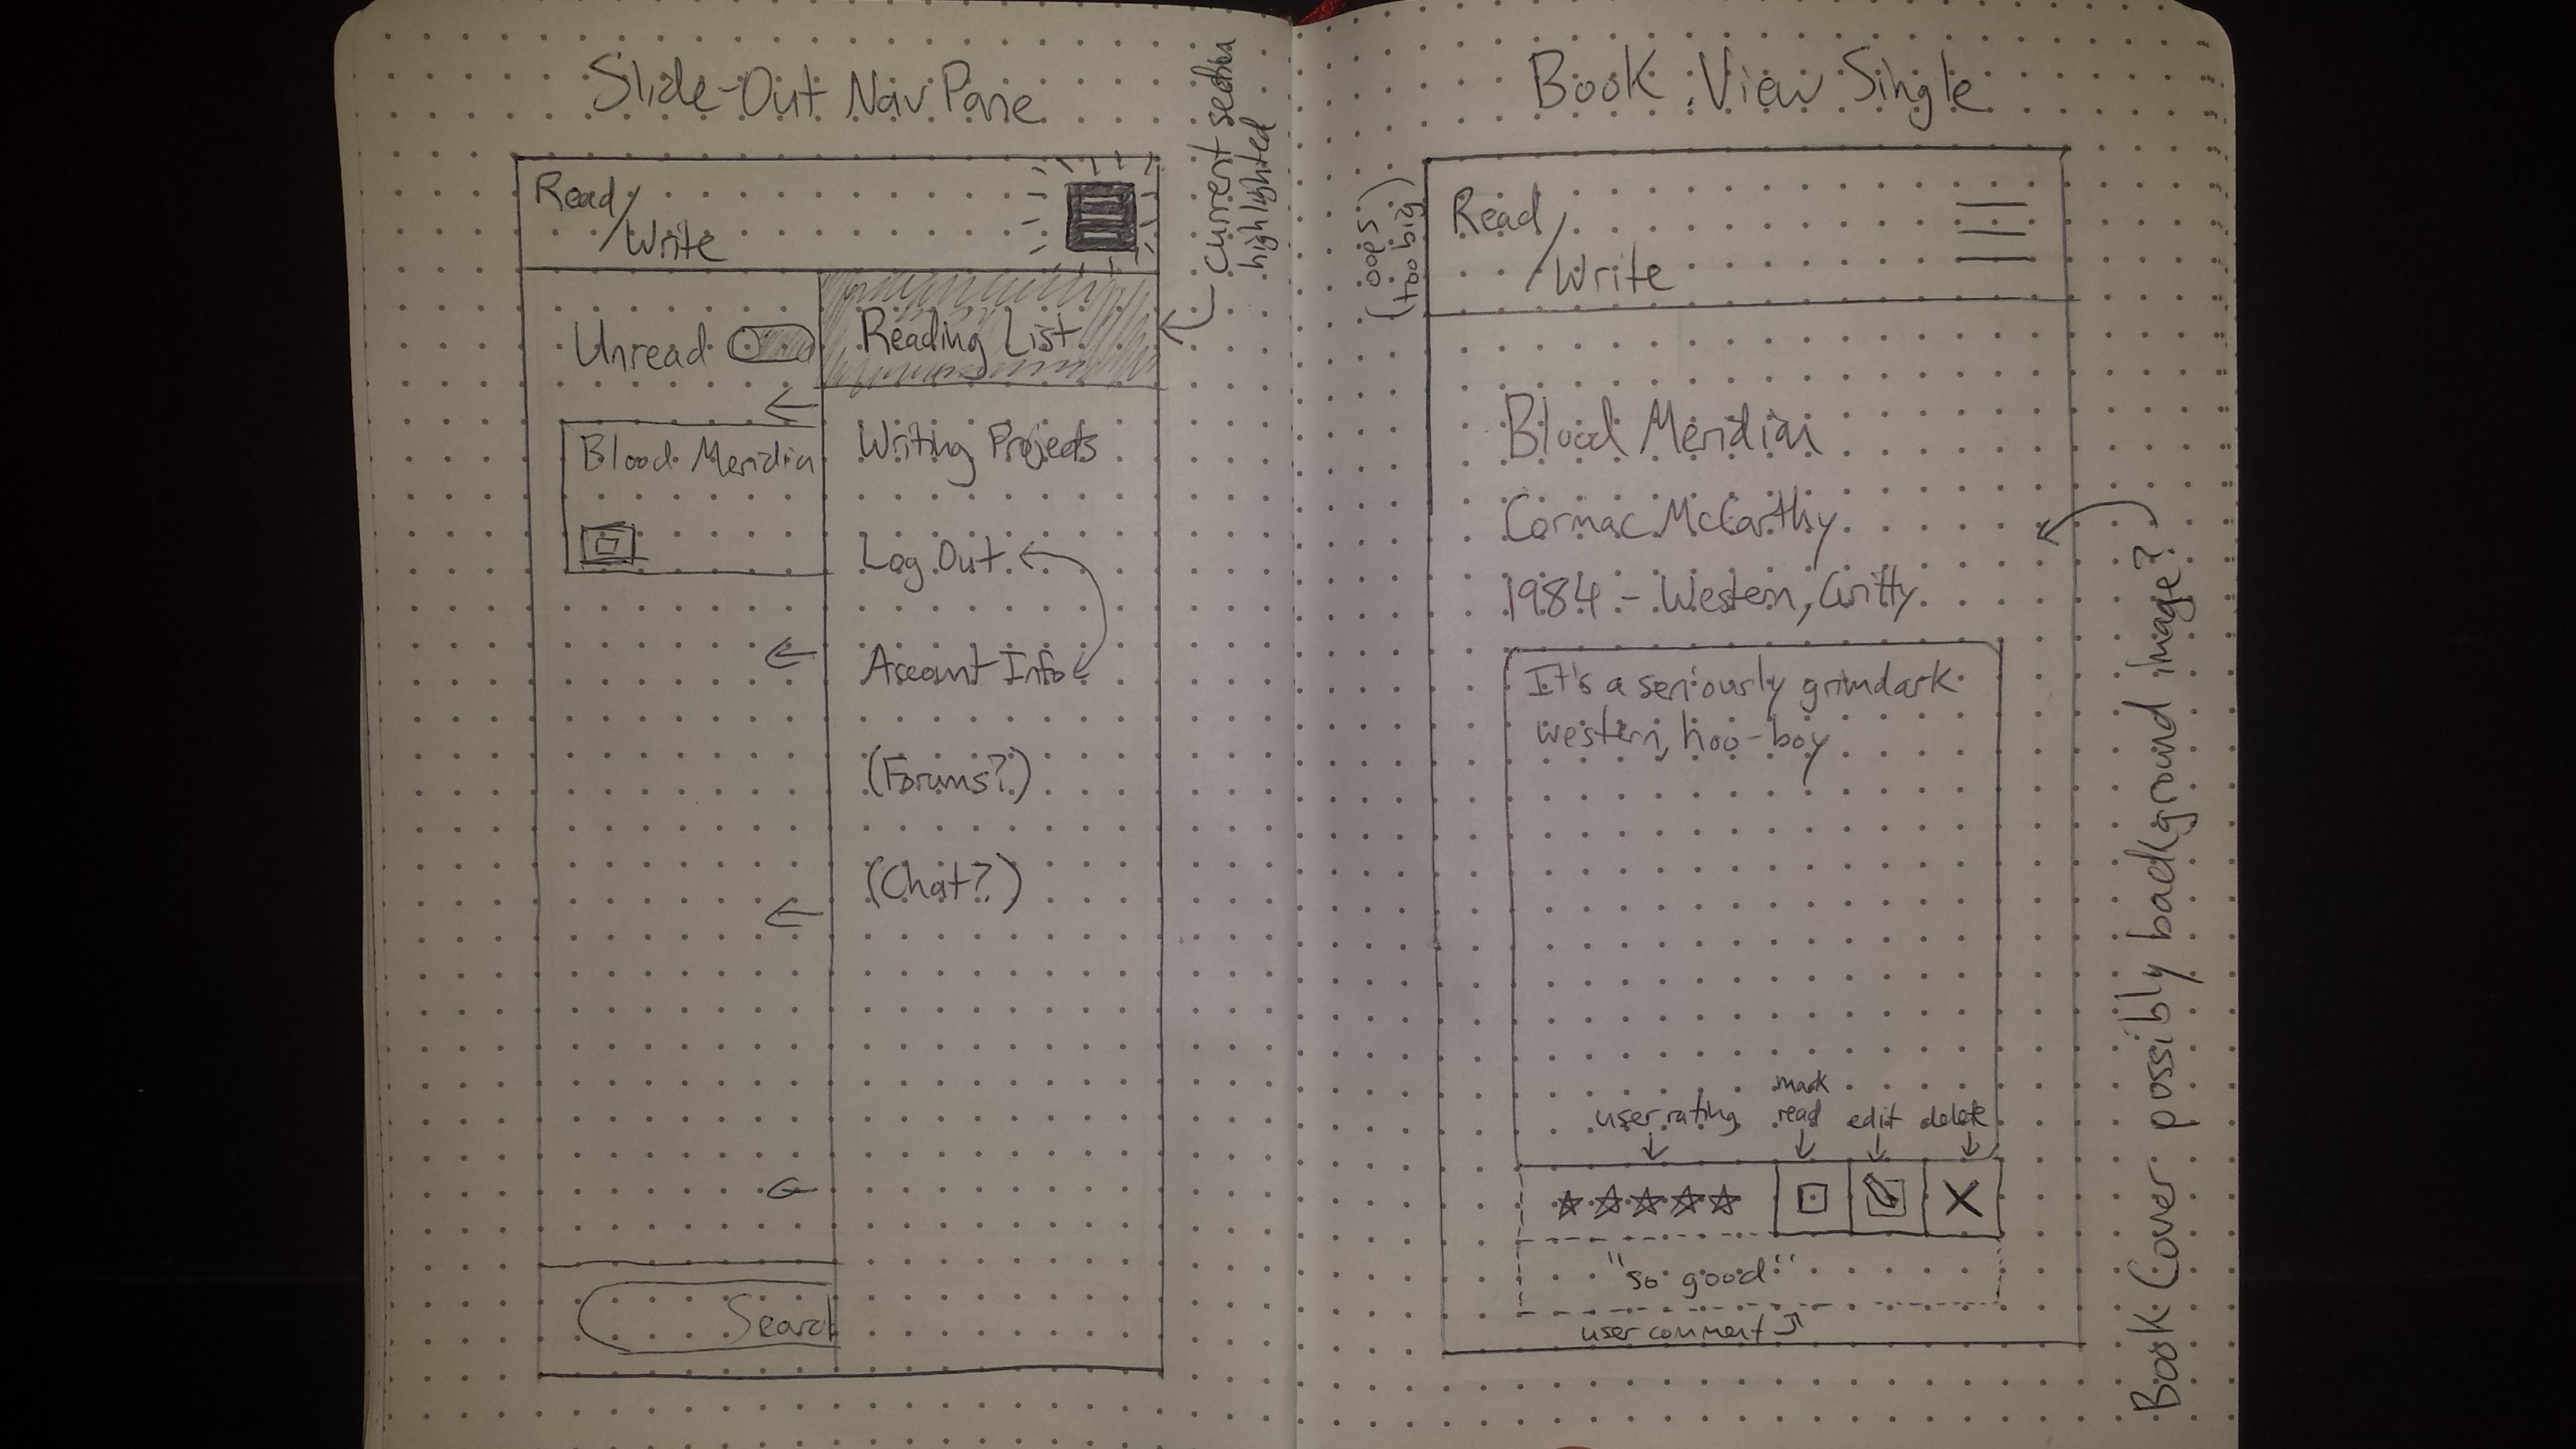 Slide-Out Nav Pane
Read/
Write
current section
highlighted
Unread
Reading List
Blood Meridia
Writing Projects
Log Out
Account Info
(Forums?)
(Chat?)
Search
Book View Single
(oops
too big)
Read/
Write
Blood Meridian
Cormac McCarthy
1984 - Western, Gritty
It's a seriously grimdark
western, hoo-boy
user rating
mark
read
edit
delete
"so good"
user comment
Book Cover possibly background image?